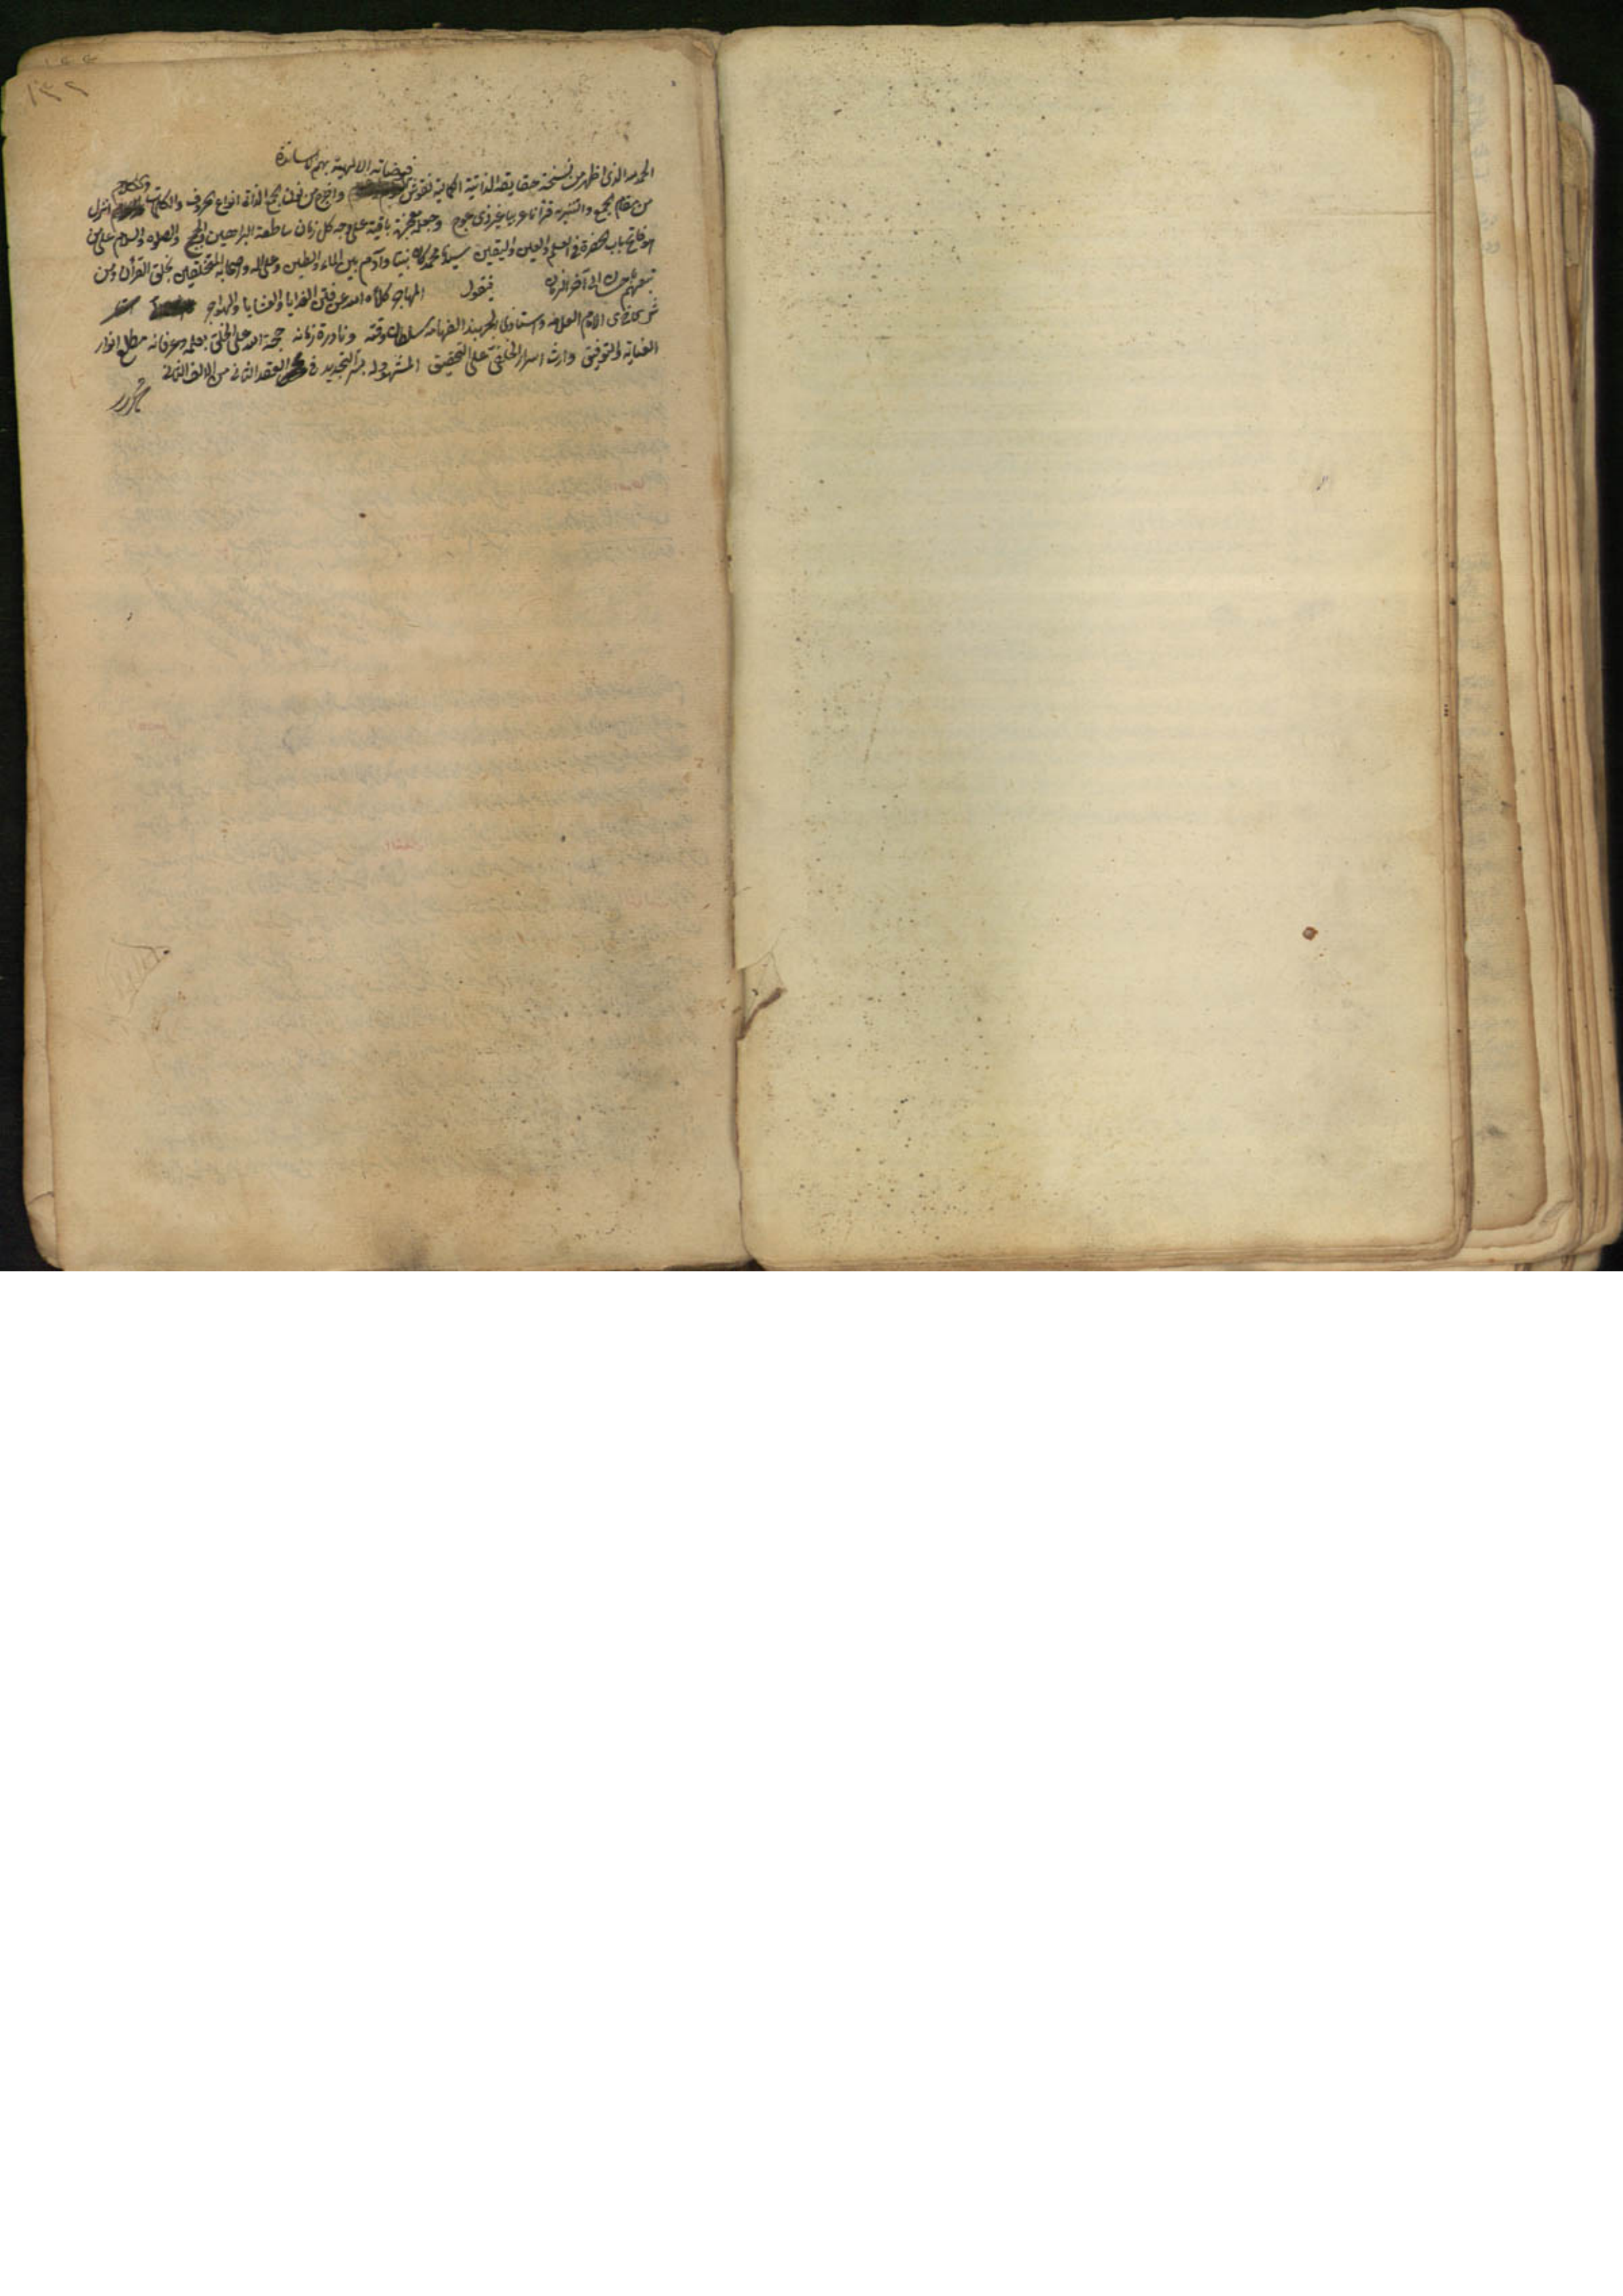 ١٣٢
فيضاته الالهية بهم
الحمد لله الذى اظهر من نسخة حقايقه الذاتية الكمالية نقوش واخرج من نون الذات انواع الحروف والكلمات والكلام انزل
من مقام الجمع والتنزيه قرآنا عربيا غير ذى عوج وجعله معجزة باقية على وجه كل زمان ساطعة البراهين والحجج والصلاه والسلام على من
هو فاتح باب الحضرة فى العلم والعين واليقين سيدنا محمد كان نبيا وآدم بين الماء والطين وعلى اله واصحابه المتخلقين بخلق القرآن ومن
تبعهم باحسان الى آخر الزمان فنقول المهاجر كلأه الله عن فتن الغدايا والعشايا
شرع الامام العلامه واستاذى الفهامه سلطان وقته ونادرة زمانه حجة الله على الخلق بعلمه وعرفانه مطلع انوار
العناية والتوفيق وارث اسرار على التحقيق المشهود له بسر التجديد فى العقد الثانى من الالف الثانى